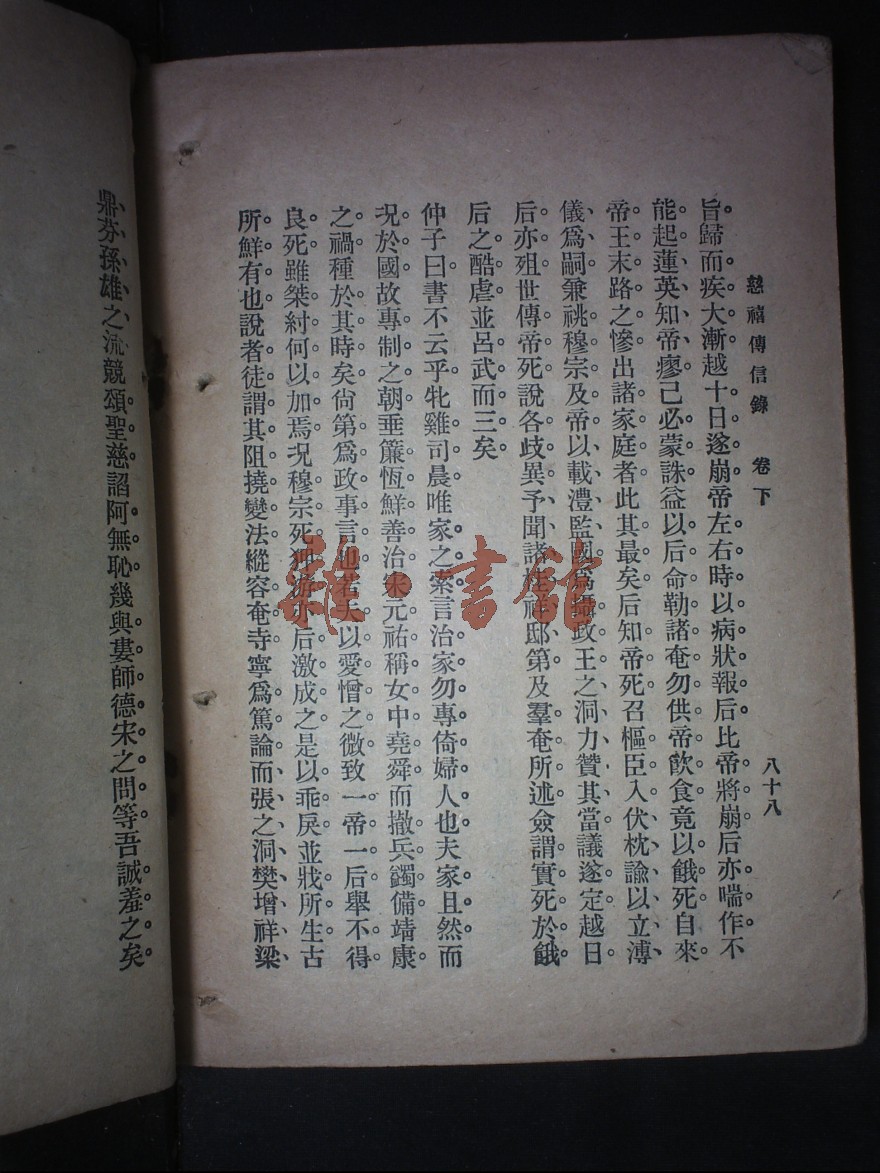 慈禧傳信錄 卷下 八十八
旨歸而疾大漸越十日遂崩帝左右時以病狀報后比帝將崩后亦喘作不
能起蓮英知帝瘳己必蒙誅益以后命勒諸奄勿供帝飲食竟以餓死自來
帝王末路之慘出諸家庭者此其最矣后知帝死召樞臣入伏枕諭以立溥
儀爲嗣兼祧穆宗及帝以載灃監國爲攝政王之洞力贊其當議遂定越日
后亦殂世傳帝死說各歧異予聞諸 邸第及羣奄所述僉謂實死於餓
后之酷虐並呂武而三矣
仲子曰書不云乎牝雞司晨唯家之索言治家勿專倚婦人也夫家且然而
况於國故專制之朝垂簾恆鮮善治宋元祐稱女中堯舜而撤兵蠲備靖康
之禍種於其時矣尙第爲政事言也若夫以愛憎之微致一帝一后舉不得
良死雖桀紂何以加焉况穆宗死狎游亦后激成之是以乖戾並戕所生古
所鮮有也說者徒謂其阻撓變法縱容奄寺寧爲篤論而張之洞樊增祥梁
鼎芬孫雄之流競頌聖慈諂阿無恥幾與婁師德宋之問等吾誠羞之矣
雜·書館